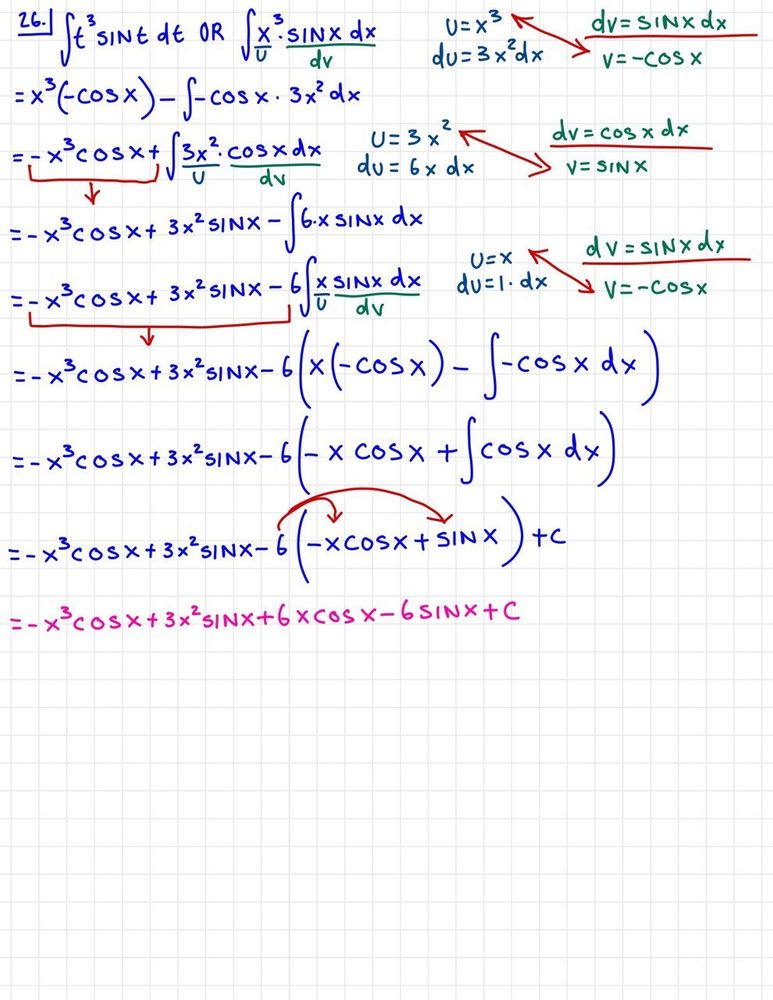 26. ∫t³ sint dt OR ∫x³·sinx dx U=x³ dv=sinx dx
U dv du=3x²dx v=-cosx
=x³(-cosx)-∫-cosx·3x²dx
=-x³cosx+∫3x²·cosxdx U=3x² dv=cosxdx
U dv du=6xdx v=sinx
=-x³cosx+3x²sinx-∫6·xsinxdx
=-x³cosx+3x²sinx-6∫xsinxdx U=x dv=sinxdx
U dv du=1·dx v=-cosx
=-x³cosx+3x²sinx-6(x(-cosx)-∫-cosxdx)
=-x³cosx+3x²sinx-6(-xcosx+∫cosxdx)
=-x³cosx+3x²sinx-6(-xcosx+sinx)+C
=-x³cosx+3x²sinx+6xcosx-6sinx+C